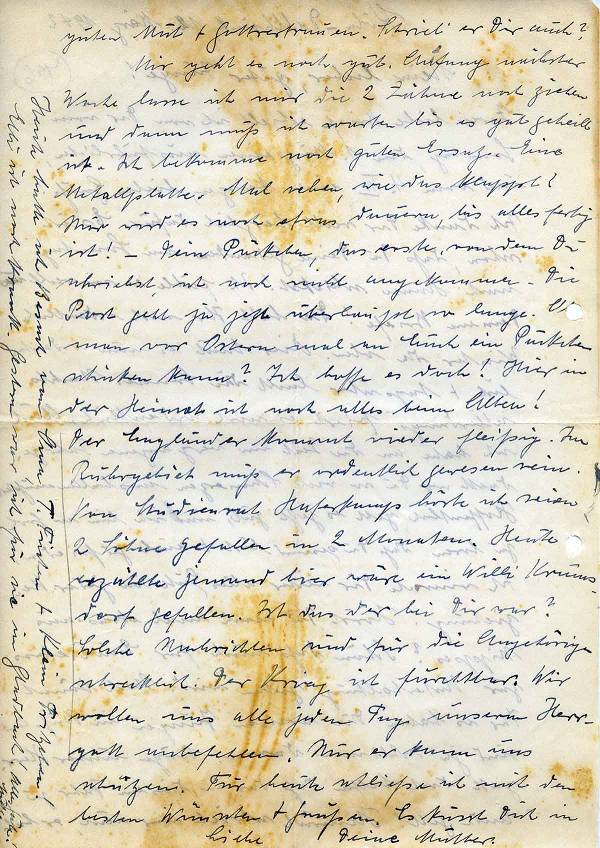 guten Mut + Gottvertrauen. Schrieb er Dir auch?
Mir geht es noch gut. Anfang nächster
Woche lasse ich mir die 2 Zähne noch ziehen
und dann muß ich warten bis es gut geheilt
ist. Ich bekomme noch guten Ersatz. Eine
Metallplatte. Mal sehen, wie das klappt?
Nur wird es noch etwas dauern, bis alles fertig
ist! – Dein Päckchen, das erste, von dem Du
schriebst, ist noch nicht angekommen. Die
Post geht ja jetzt überhaupt so lange. Ob
man vor Ostern mal an Euch ein Päckchen
schicken kann? Ich hoffe es doch! Hier in
der Heimat ist noch alles beim Alten!
Der Engländer kommt wieder fleißig. Im
Ruhrgebiet muß er ordentlich gewesen sein.
Von Studienrat Huferkamps hörte ich seien
2 Söhne gefallen in 2 Monaten. Heute
erzählte jemand hier wäre ein Willi Krums-
dorf gefallen. Ist das der bei Dir war?
Solche Nachrichten sind für die Angehörige
schrecklich. Der Krieg ist furchtbar. Wir
wollen uns alle jeden Tag unserem Herr-
gott anbefehlen. Nur er kann uns
schützen. Für heute schließe ich mit den
besten Wünschen + Grüßen. Es küsst Dich in
Liebe Deine Mutter.
Heute hatte ich Besuch von + Klein
Elli ist noch krank. Gestern war ich für sie in Gladbach!